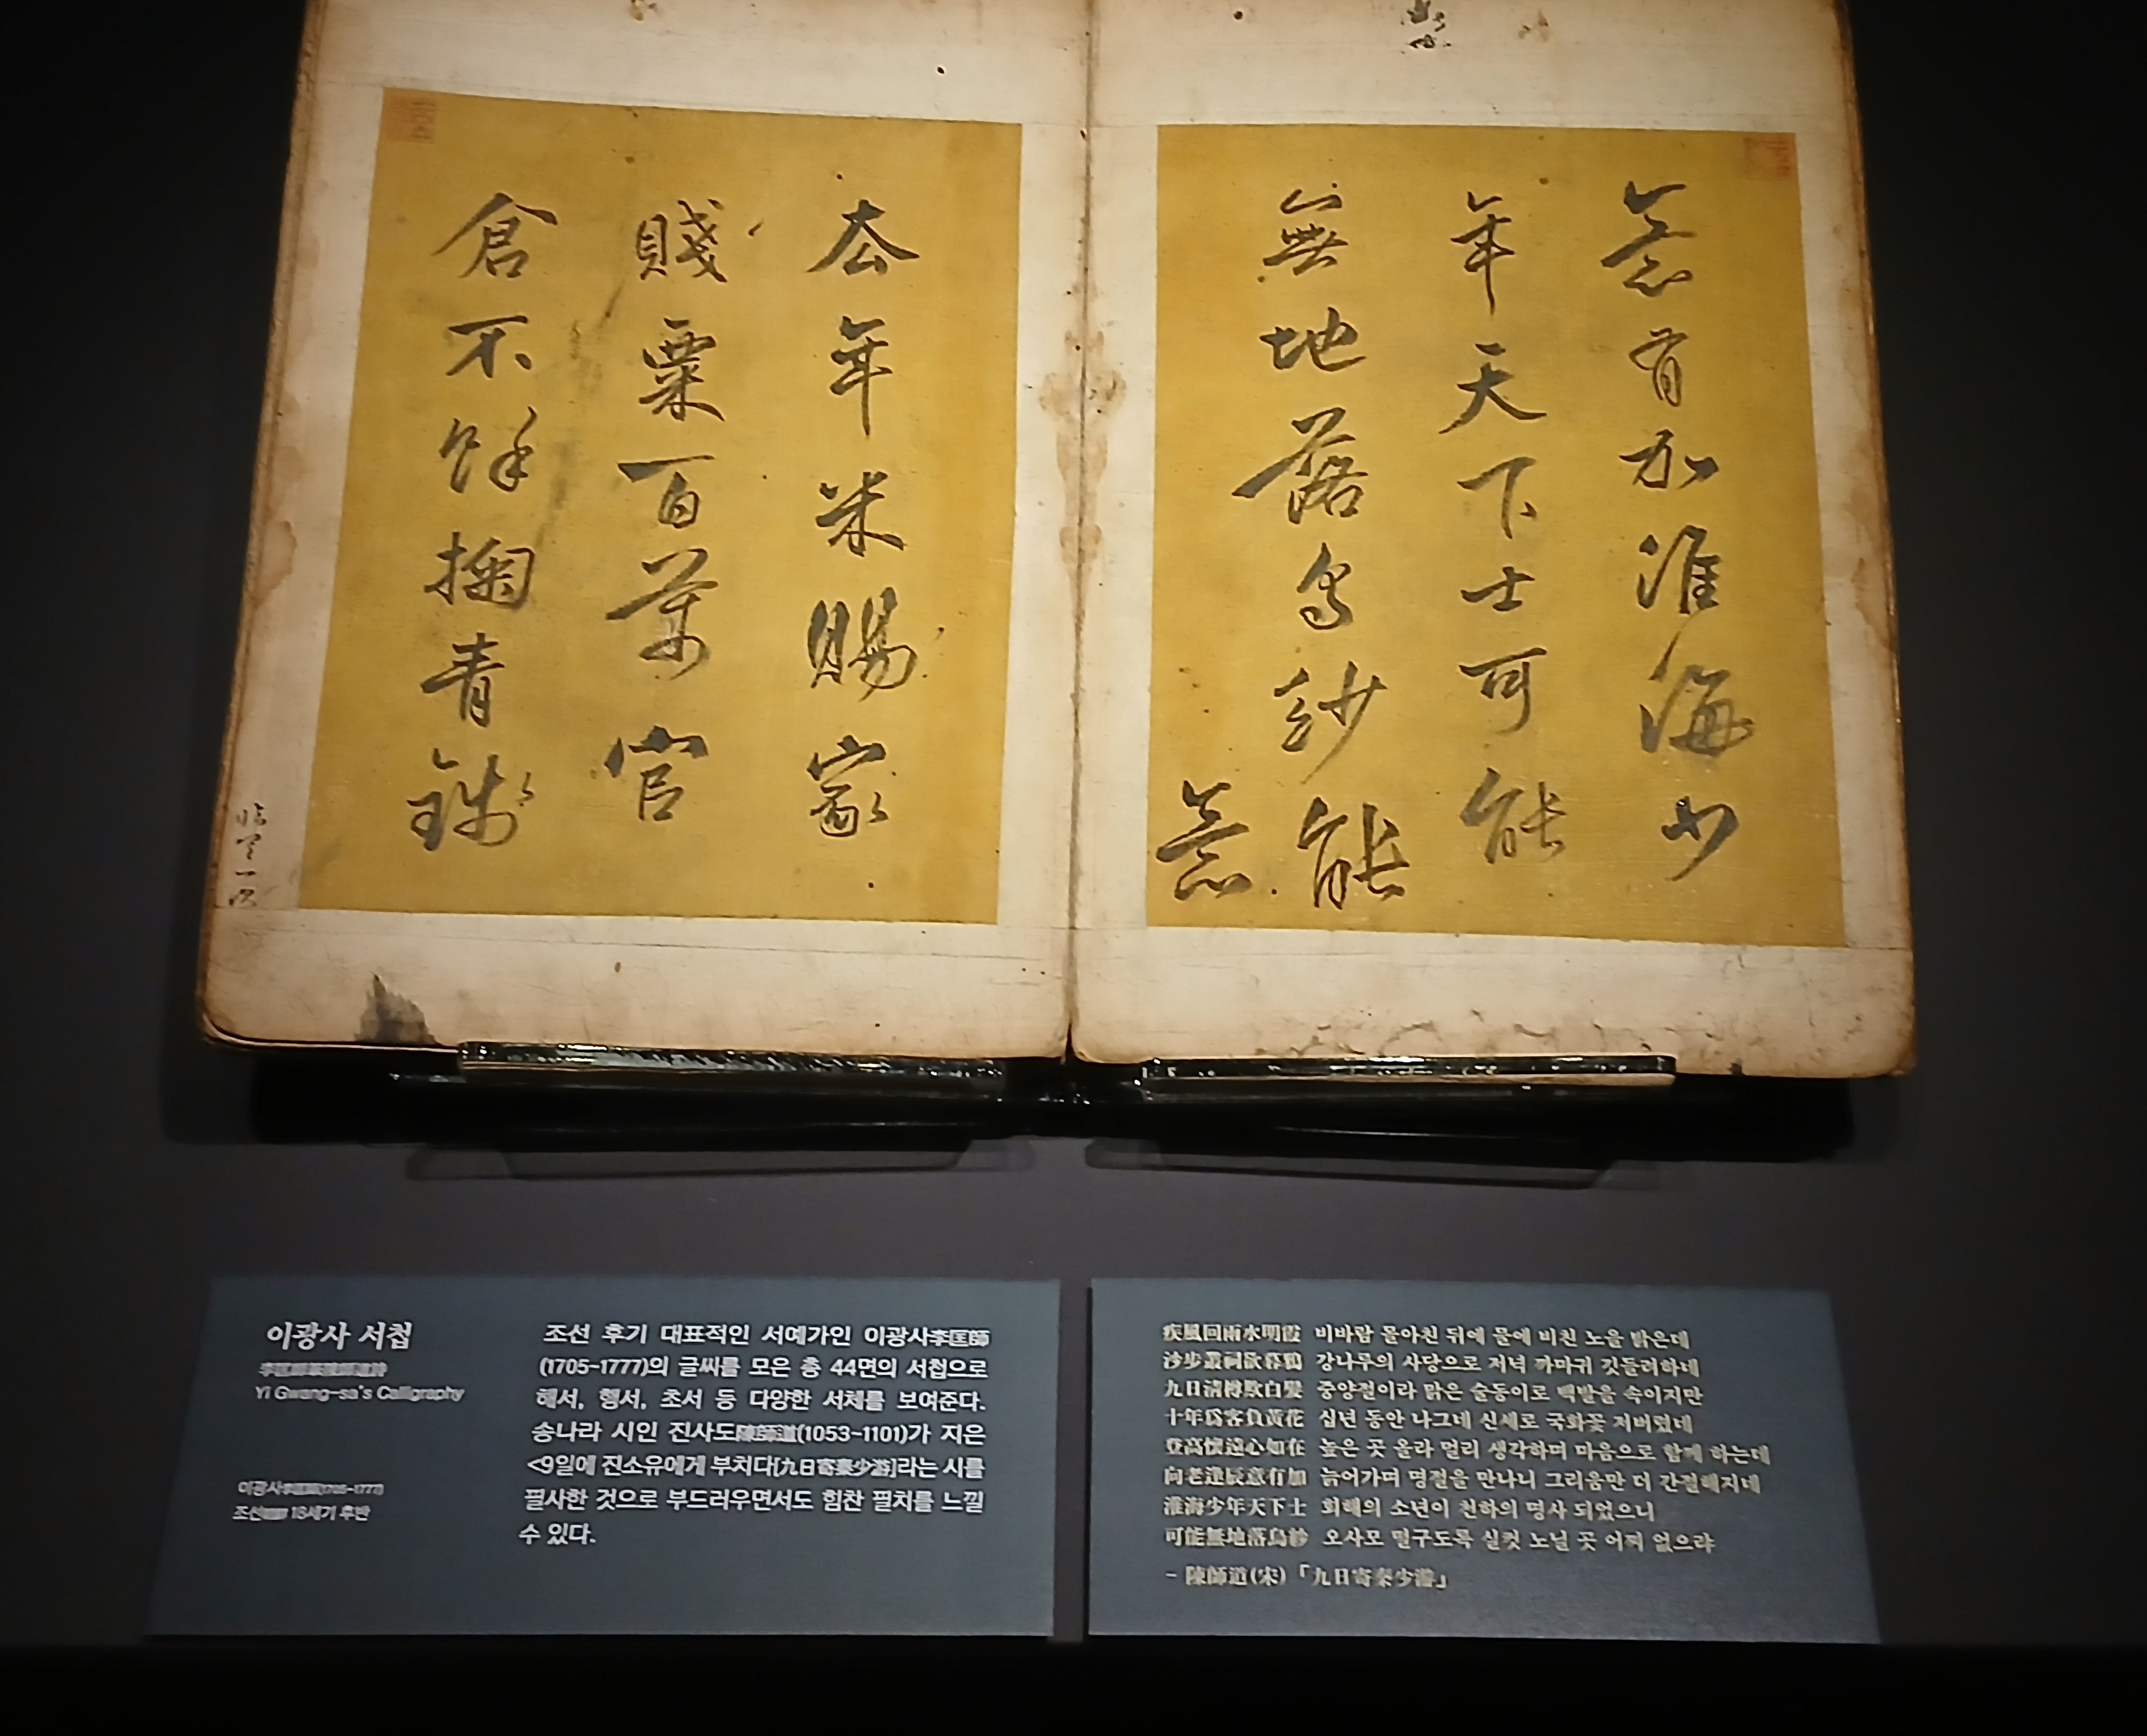 意有加淮海少
年天下士可能
無地落烏紗能
意
去年米賜家
賤粟百萬官
倉不餘掬青錢
이광사 서첩
Yi Gwang-sa's Calligraphy
이광사李匡師(1705~1777)
조선 18세기 후반
조선 후기 대표적인 서예가인 이광사李匡師
(1705~1777)의 글씨를 모은 총 44면의 서첩으로
해서, 행서, 초서 등 다양한 서체를 보여준다.
송나라 시인 진사도陳師道(1053~1101)가 지은
<9일에 진소유에게 부치다[九日寄秦少游]라는 시를
필사한 것으로 부드러우면서도 힘찬 필치를 느낄
수 있다.
疾風回雨水明霞 비바람 몰아친 뒤에 물에 비친 노을 밝은데
沙步叢祠欲暮鴉 강나루의 사당으로 저녁 까마귀 깃들려하네
九日淸樽欺白髮 중양절이라 맑은 술동이로 백발을 속이지만
十年爲客負黃花 십년 동안 나그네 신세로 국화꽃 저버렸네
登高懷遠心如在 높은 곳 올라 멀리 생각하며 마음으로 함께 하는데
向老逢辰意有加 늙어가며 명절을 만나니 그리움만 더 간절해지네
淮海少年天下士 회해의 소년이 천하의 명사 되었으니
可能無地落烏紗 오사모 떨구도록 실컷 노닐 곳 어찌 없으랴
- 陳師道(宋)「九日寄秦少游」